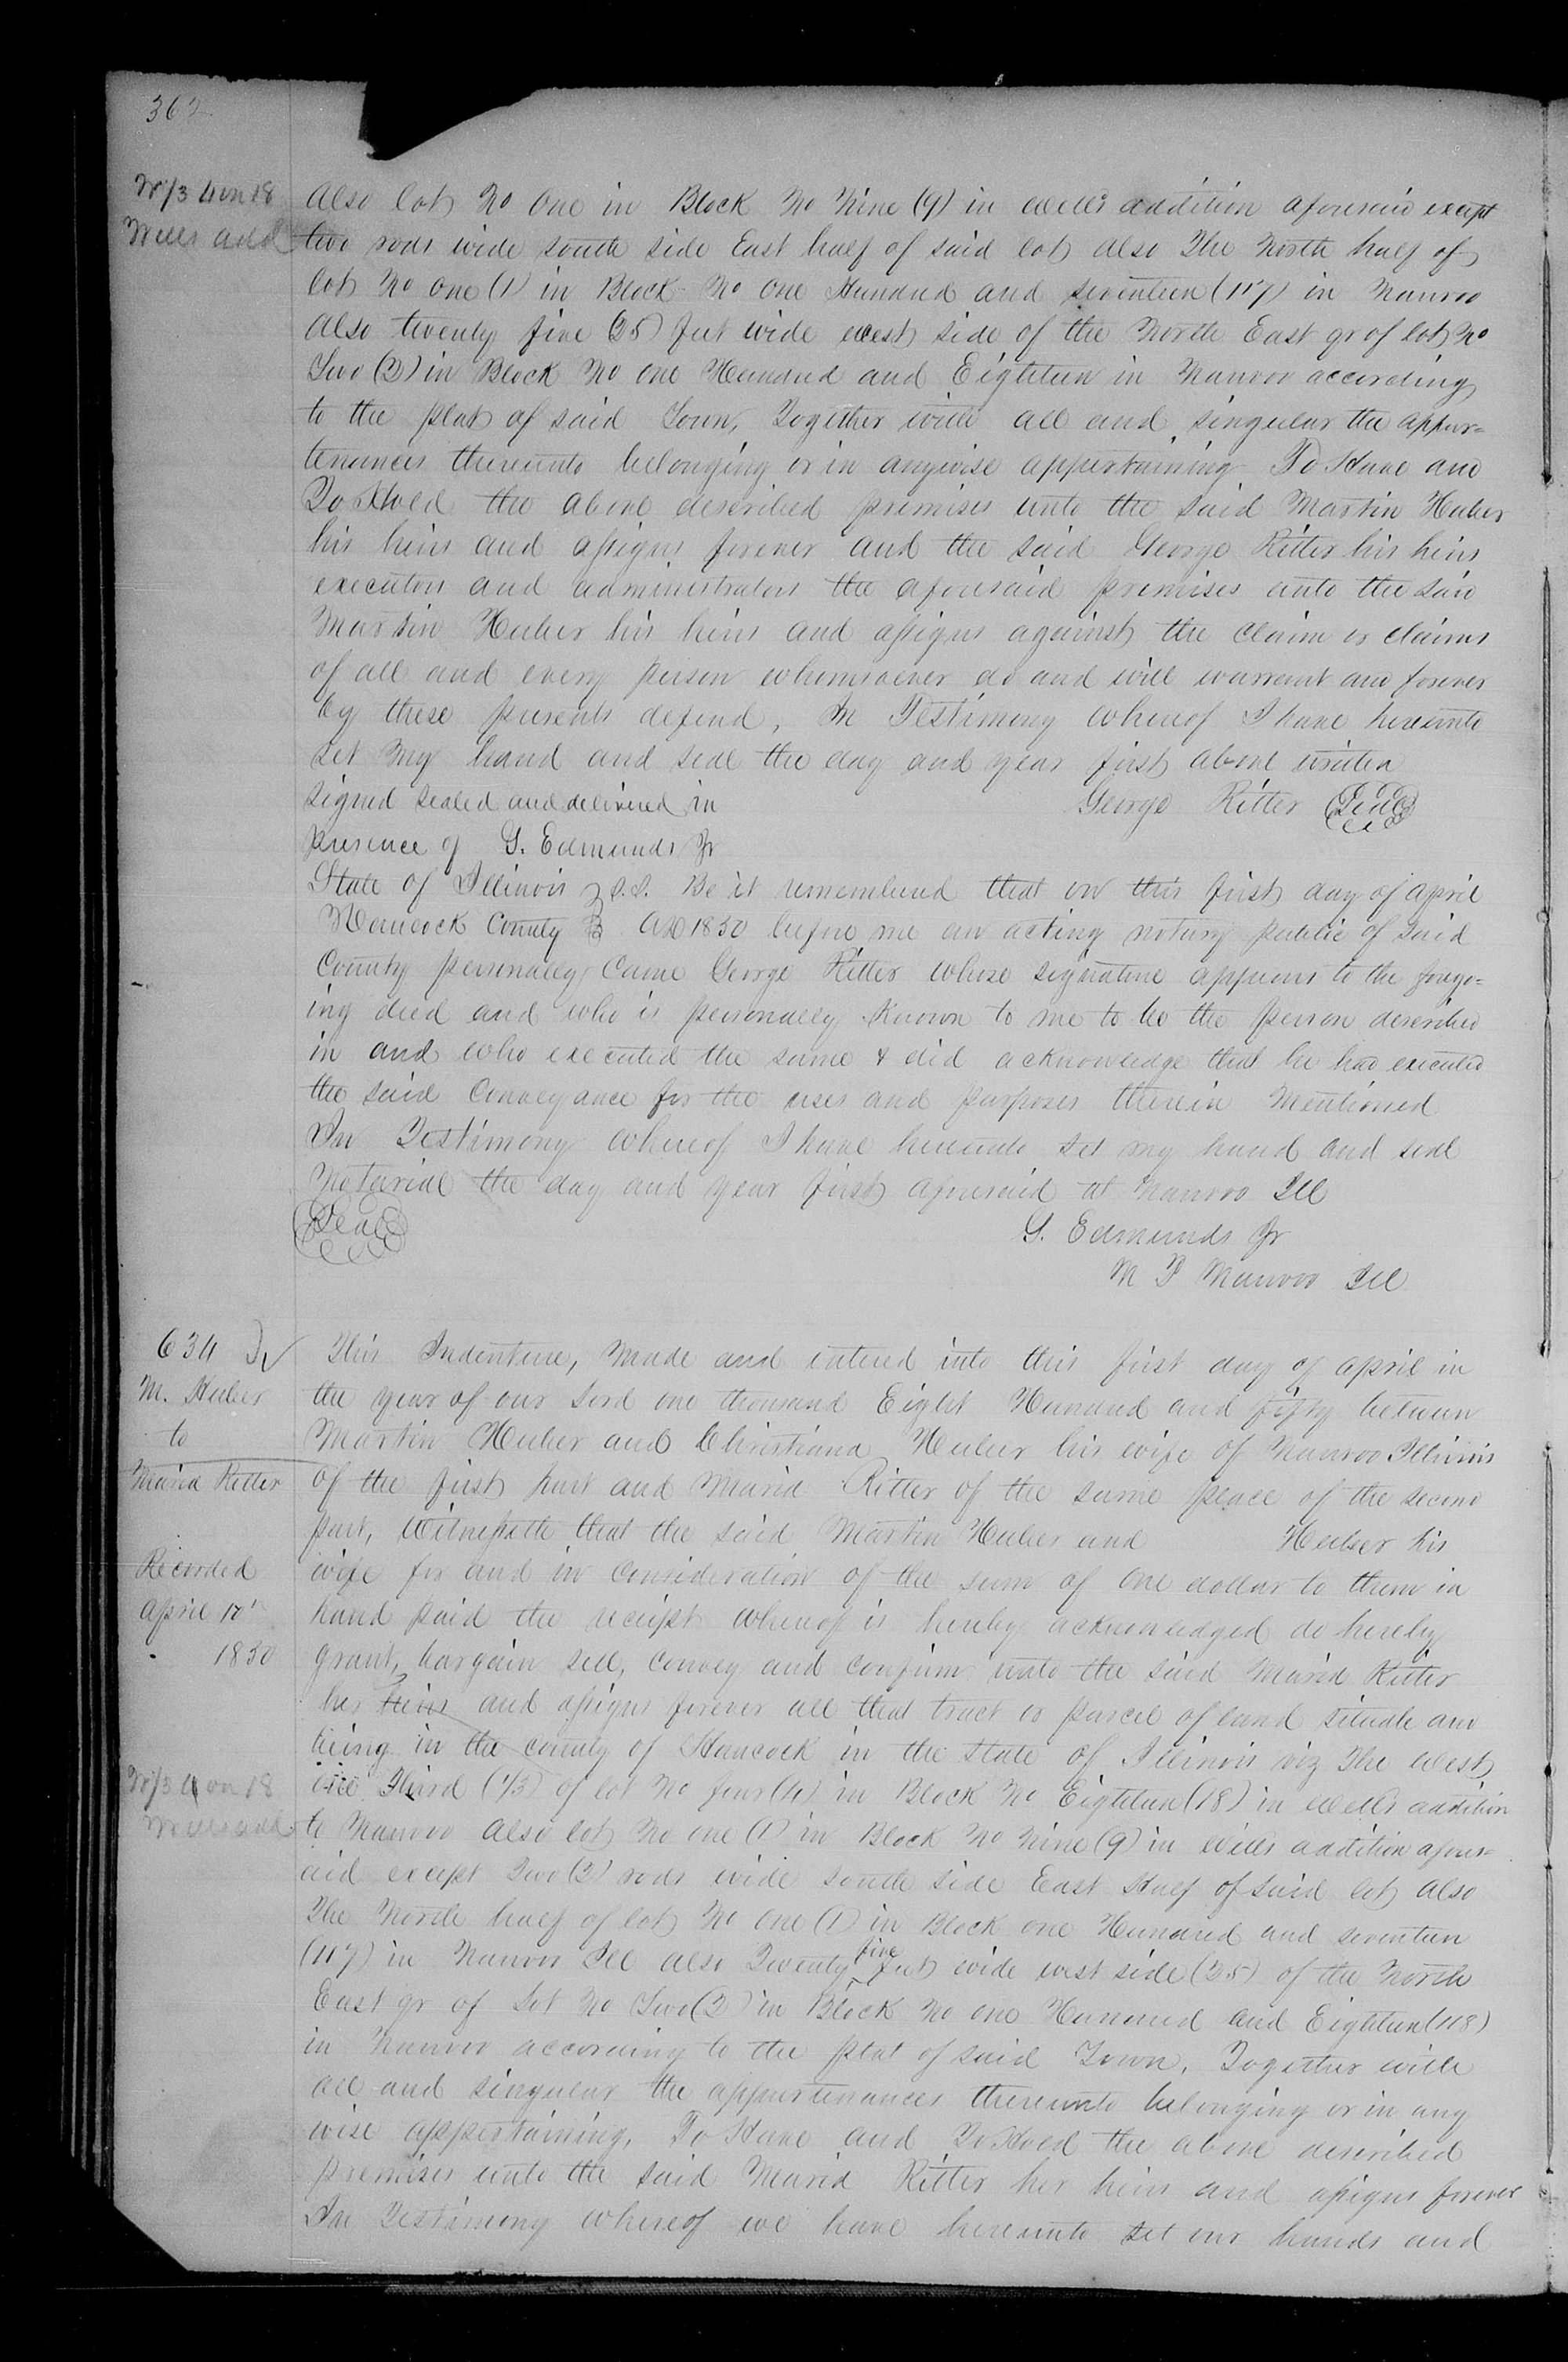 362
W 1/3 4 on 18
Wells add
Also lot No One in Block No Nine (9) in Wells addition aforesaid except
two rods wide south side East half of said lot also The North half of
lot No one (1) in Block No One Hundred and seventeen (117) in Nauvoo
Also twenty five (25) feet wide west side of the North East qr of lot No
Two (2) in Block No one Hundred and Eighteen in Nauvoo according
to the plat of said Town, Together with all and singular the appur=
tenances thereunto belonging or in anywise appertaining To Have and
To Hold the above described premises unto the said Martin Huber
his heirs and assigns forever and the said George Ritter his heirs
executors and administrators the aforesaid premises unto the said
Martin Huber his heirs and assigns against the claim or claims
of all and every person whomsoever do and will warrant and forever
by these presents defend, In Testimony whereof I have hereunto
set my hand and seal the day and year first above written
signed sealed and delivered in George Ritter (Seal)
presence of G. Edmunds Jr
State of Illinois } S.S. Be it remembered that on this first day of April
Hancock County } AD 1850 before me an acting notary public of said
County personally came George Ritter whose signature appears to the forego=
ing deed and who is personally known to me to be the person described
in and who executed the same & did acknowledge that he had executed
the said Conveyance for the uses and purposes therein Mentioned
In Testimony whereof I have hereunto set my hand and seal
Notarial the day and year first aforesaid at Nauvoo Ill
(Seal) G. Edmunds Jr
N P Nauvoo Ill
634
M. Huber
to
Maria Ritter
Recorded
April
1850
This Indenture, Made and entered into this first day of April in
the year of our Lord one thousand Eight Hundred and fifty between
Martin Huber and Christiana Huber his wife of Nauvoo Illinois
of the first part and Maria Ritter of the same place of the second
part, Witnesseth that the said Martin Huber and Huber his
wife for and in consideration of the sum of One dollar to them in
hand paid the receipt whereof is hereby acknowledged do hereby
grant, bargain sell, convey and confirm unto the said Maria Ritter
her heirs and assigns forever all that tract or parcel of land situate and
being in the county of Hancock in the State of Illinois viz The West
W 1/3 4 on 18
Wells add
one Third (1/3) of lot No four (4) in Block No Eighteen (18) in Wells addition
to Nauvoo Also lot No one (1) in Block No Nine (9) in Wells addition afores=
aid except Two (2) rods wide south side East Half of said lot Also
The North half of lot No One (1) in Block one Hundred and seventeen
(117) in Nauvoo Ill also Twenty five feet wide west side (25) of the North
East qr of Lot No Two (2) in Block No one Hundred and Eighteen (118)
in Nauvoo according to the plat of said Town, Together with
all and singular the appurtenances thereunto belonging or in any
wise appertaining, To Have and To Hold the above described
premises unto the said Maria Ritter her heirs and assigns forever
In Testimony whereof we have hereunto set our hands and